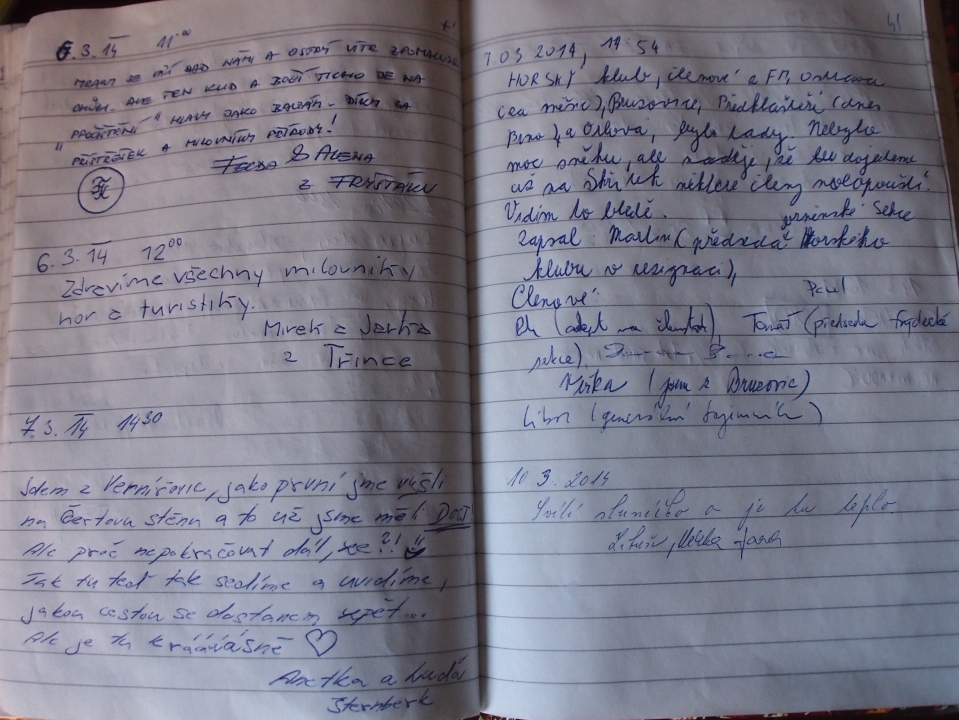 6.3.14 11⁰⁰
MRAKY SE NAD NÁMI A OSTRÝ VÍTR
ALE TEN KLID A BOŽÍ TICHO
" HLAVY JAKO BALZÁM. DÍKY ZA
PŘÍSTŘEŠEK A MILOVNÍKY PŘÍRODY!
& ALENA
Z FRYŠTÁKU
6.3.14 12⁰⁰
Zdravíme všechny milovníky
hor a turistiky.
Mirek a Jarka
z Třince
7.3.14 14³⁰
Jdem z Vernířovic, jako první jme vyšli
na Čertovu stěnu a to už jsme měli DOST
Ale proč nepokračovat dál, že?!
Tak tu teď tak sedíme a uvidíme,
jakou cestou se dostanem zpět...
Ale je tu kráááásně ♡
Anetka a Luďa
Šternberk
41
7.03.2014, 14 54
HORSKÝ klub, členové z FM, Ostrava
Bruzovice, Předklášteří (dnes
Brno) a Orlová, bylo tady. Nebylo
moc sněhu, ale naděje, že tu dojedeme
až na Skřítek některé členy neopouští.
Vidím to bledě.
Zapsal: Martin (předseda brněnské sekce Horského
klubu v rezignaci),
Členové: Pavel
Tomáš (předseda frýdecké
sekce),
(jsem z Bruzovic)
Libor (generální tajemník)
10.3.2014
Svítí sluníčko a je tu teplo